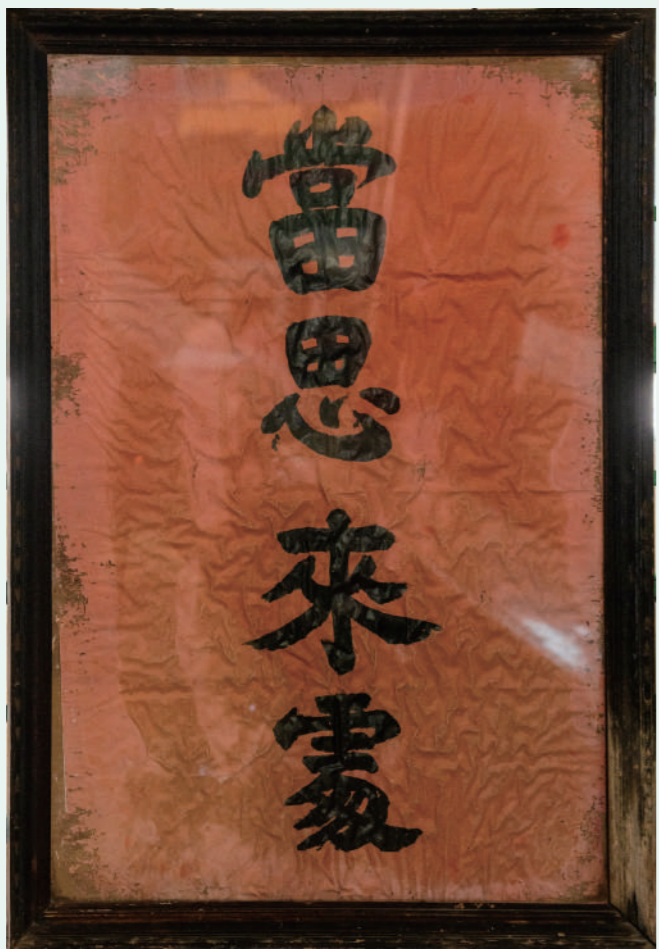 當思來處